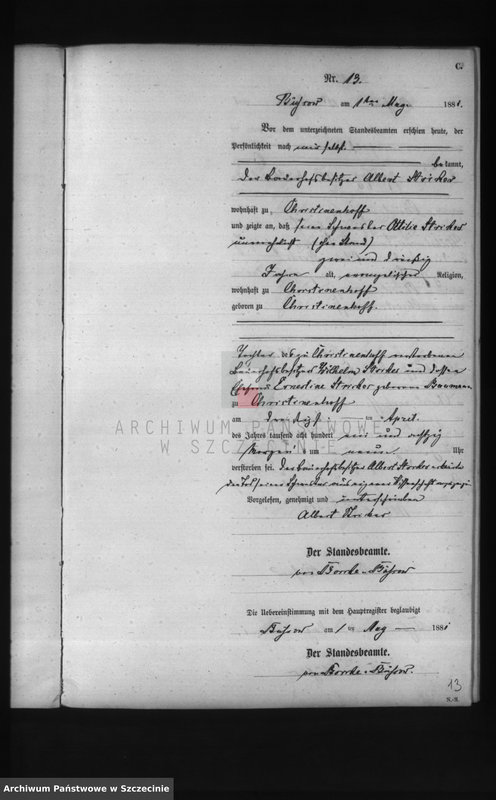 C.
Nr. 13.
Bührow am 1ten May 1881.
Vor dem unterzeichneten Standesbeamten erschien heute, der
Persönlichkeit nach
bekannt,
der Bauerhofsbesitzer Albert Stricker
wohnhaft zu Christinenhoff
und zeigte an, daß seine Schwester Ottilie Stricker
unverehelicht
zwei und dreißig
Jahre alt, evangelischer Religion,
wohnhaft zu Christinenhoff
geboren zu Christinenhoff.
Tochter des zu Christinenhoff verstorbenen
Bauerhofsbesitzers Wilhelm Stricker und dessen
Ehefrau Ernestine Stricker geborenen Baumann
zu Christinenhoff
am dreißigst ten April
des Jahres tausend acht hundert ein und achtzig
Morgens um neun Uhr
verstorben sei. Der Bauerhofsbesitzer Albert Stricker erklärte
den Tod seiner Schwester aus eigener Wissenschaft anzuzeigen
Vorgelesen, genehmigt und unterschrieben
Albert Stricker
Der Standesbeamte.
von Borcke-Bührow
Die Uebereinstimmung mit dem Hauptregister beglaubigt
Bührow am 1 ten May 1881
Der Standesbeamte.
von Borcke-Bührow.
13
ARCHIWUM PAŃSTWOWE
W SZCZECINIE
Archiwum Państwowe w Szczecinie